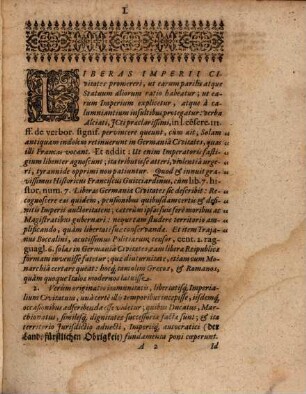 I.
LIBERAS IMPERII CI-
vitates promoveri, ut earum partibus atque
Statuum aliorum ratio habeatur, ut ea-
rum Imperium explicetur, atque à ca-
lumniantium insultibus protegatur: verba
Alciati, JCti præclarissimi, in l. cessere. in
ff. de verbor. signif. pervincere queunt, cùm ait, Solam
antiquam indolem retinuerunt in Germania Civitates, quas
alii Francas vocant. Et addit: Ut enim Imperatoris fasti-
gium libenter agnoscunt; ita tributis atteri, vincula inju-
ri, tyrannide opprimi non patiuntur. Quod &
gravissimus Historicus Franciscus Guicciardinus, cùm lib. 7. hi-
stor. num. 7. Liberas Germaniæ Civitates sic describit: Re-
cognoscere eas quidem, pensionibus quibusdam certis & defini-
tis Imperii auctoritatem; cæterùm ipsas suis se moribus ac
Magistratibus gubernari; neque tam studere territorio am-
plificando, quàm libertati suæ conservandæ. Et item Traja-
nus Boccalini, acutissimus Politicorum censor, cent. 2. rag-
guagl. 6. solas in Germania Civitates eam liberæ Reipublicæ
formam invenisse fatetur; quæ diuturnitate, etiam cum Mo-
narchiâ certare queat: hocque tam olim Græcos, & Romanos,
quàm quoque Italos modernos latuisse.
2. Verùm origine in communitatis, libertatisque Imperia-
lium Civitatum, unà certè illo tempore incepisse, iisdemque
occasionibus adfrebuisse videtur, quibus Ducatus, Mar-
chionatus, similesque dignitates successoria facta sunt; & ita
territorio Jurisdictio adnecti, Imperiique autocratici (der
Landsfürstlichen Obrigkeit) fundamenta poni cœperunt.
A 2
Id